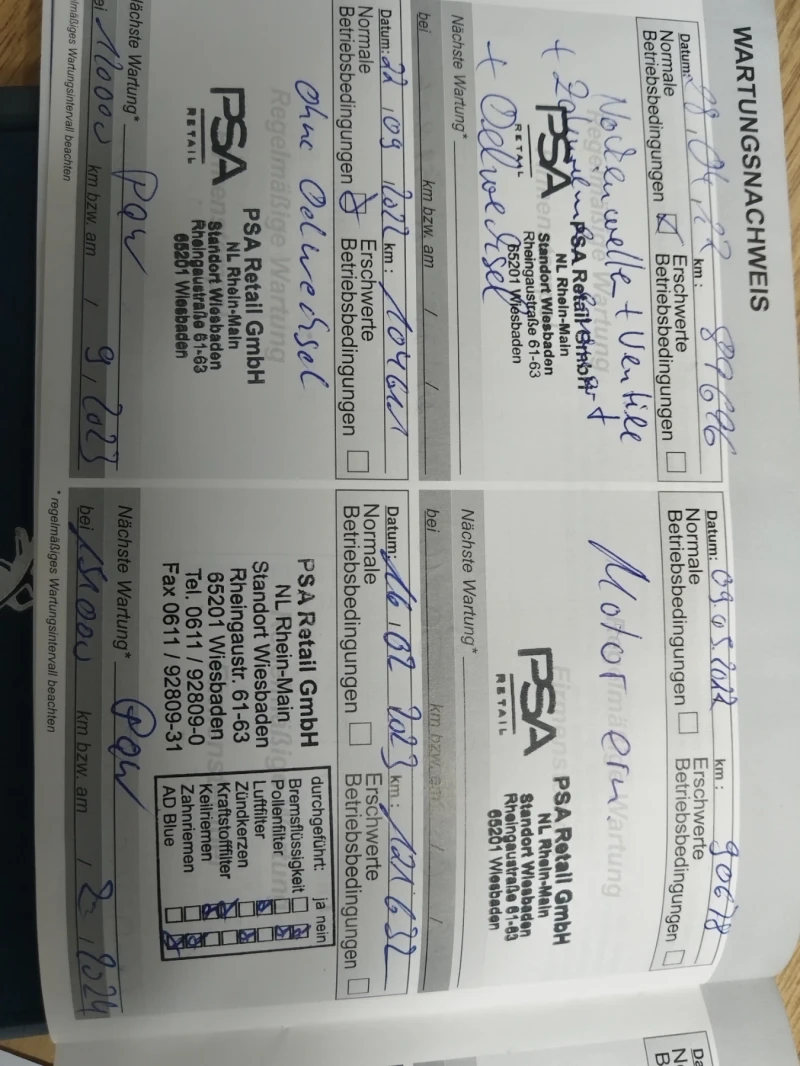 WARTUNGSNACHWEIS
Datum: 28.04.22 km: 89696
Normale Betriebsbedingungen
Erschwerte Betriebsbedingungen
Nockenwelle + Ventile
+ Zahnriemen
+ Oelwechsel
Regelmäßige Wartung
PSA
RETAIL
PSA Retail GmbH
NL Rhein-Main
Standort Wiesbaden
Rheingaustraße 61-63
65201 Wiesbaden
Nächste Wartung*
bei km bzw. am / /
Datum: 22.09.2022 km:
Normale Betriebsbedingungen
Erschwerte Betriebsbedingungen
Ohne Oelwechsel
Regelmäßige Wartung
PSA
RETAIL
PSA Retail GmbH
NL Rhein-Main
Standort Wiesbaden
Rheingaustraße 61-63
65201 Wiesbaden
Nächste Wartung*
bei 110000 km bzw. am / 9.2023
regelmäßiges Wartungsintervall beachten
Datum: 09.05.2022 km: 90678
Normale Betriebsbedingungen
Erschwerte Betriebsbedingungen
Motor ern.
Wartung
PSA
RETAIL
PSA Retail GmbH
NL Rhein-Main
Standort Wiesbaden
Rheingaustraße 61-63
65201 Wiesbaden
Nächste Wartung*
bei km bzw. am / /
Datum: 16.02.2023 km: 121632
Normale Betriebsbedingungen
Erschwerte Betriebsbedingungen
PSA Retail GmbH
NL Rhein-Main
Standort Wiesbaden
Rheingaustr. 61-63
65201 Wiesbaden
Tel. 0611 / 92809-0
Fax 0611 / 92809-31
durchgeführt: ja nein
Bremsflüssigkeit
Pollenfilter
Luftfilter
Zündkerzen
Kraftstofffilter
Keilriemen
Zahnriemen
AD Blue
Nächste Wartung*
bei 151000 km bzw. am / 2.2024
* regelmäßiges Wartungsintervall beachten